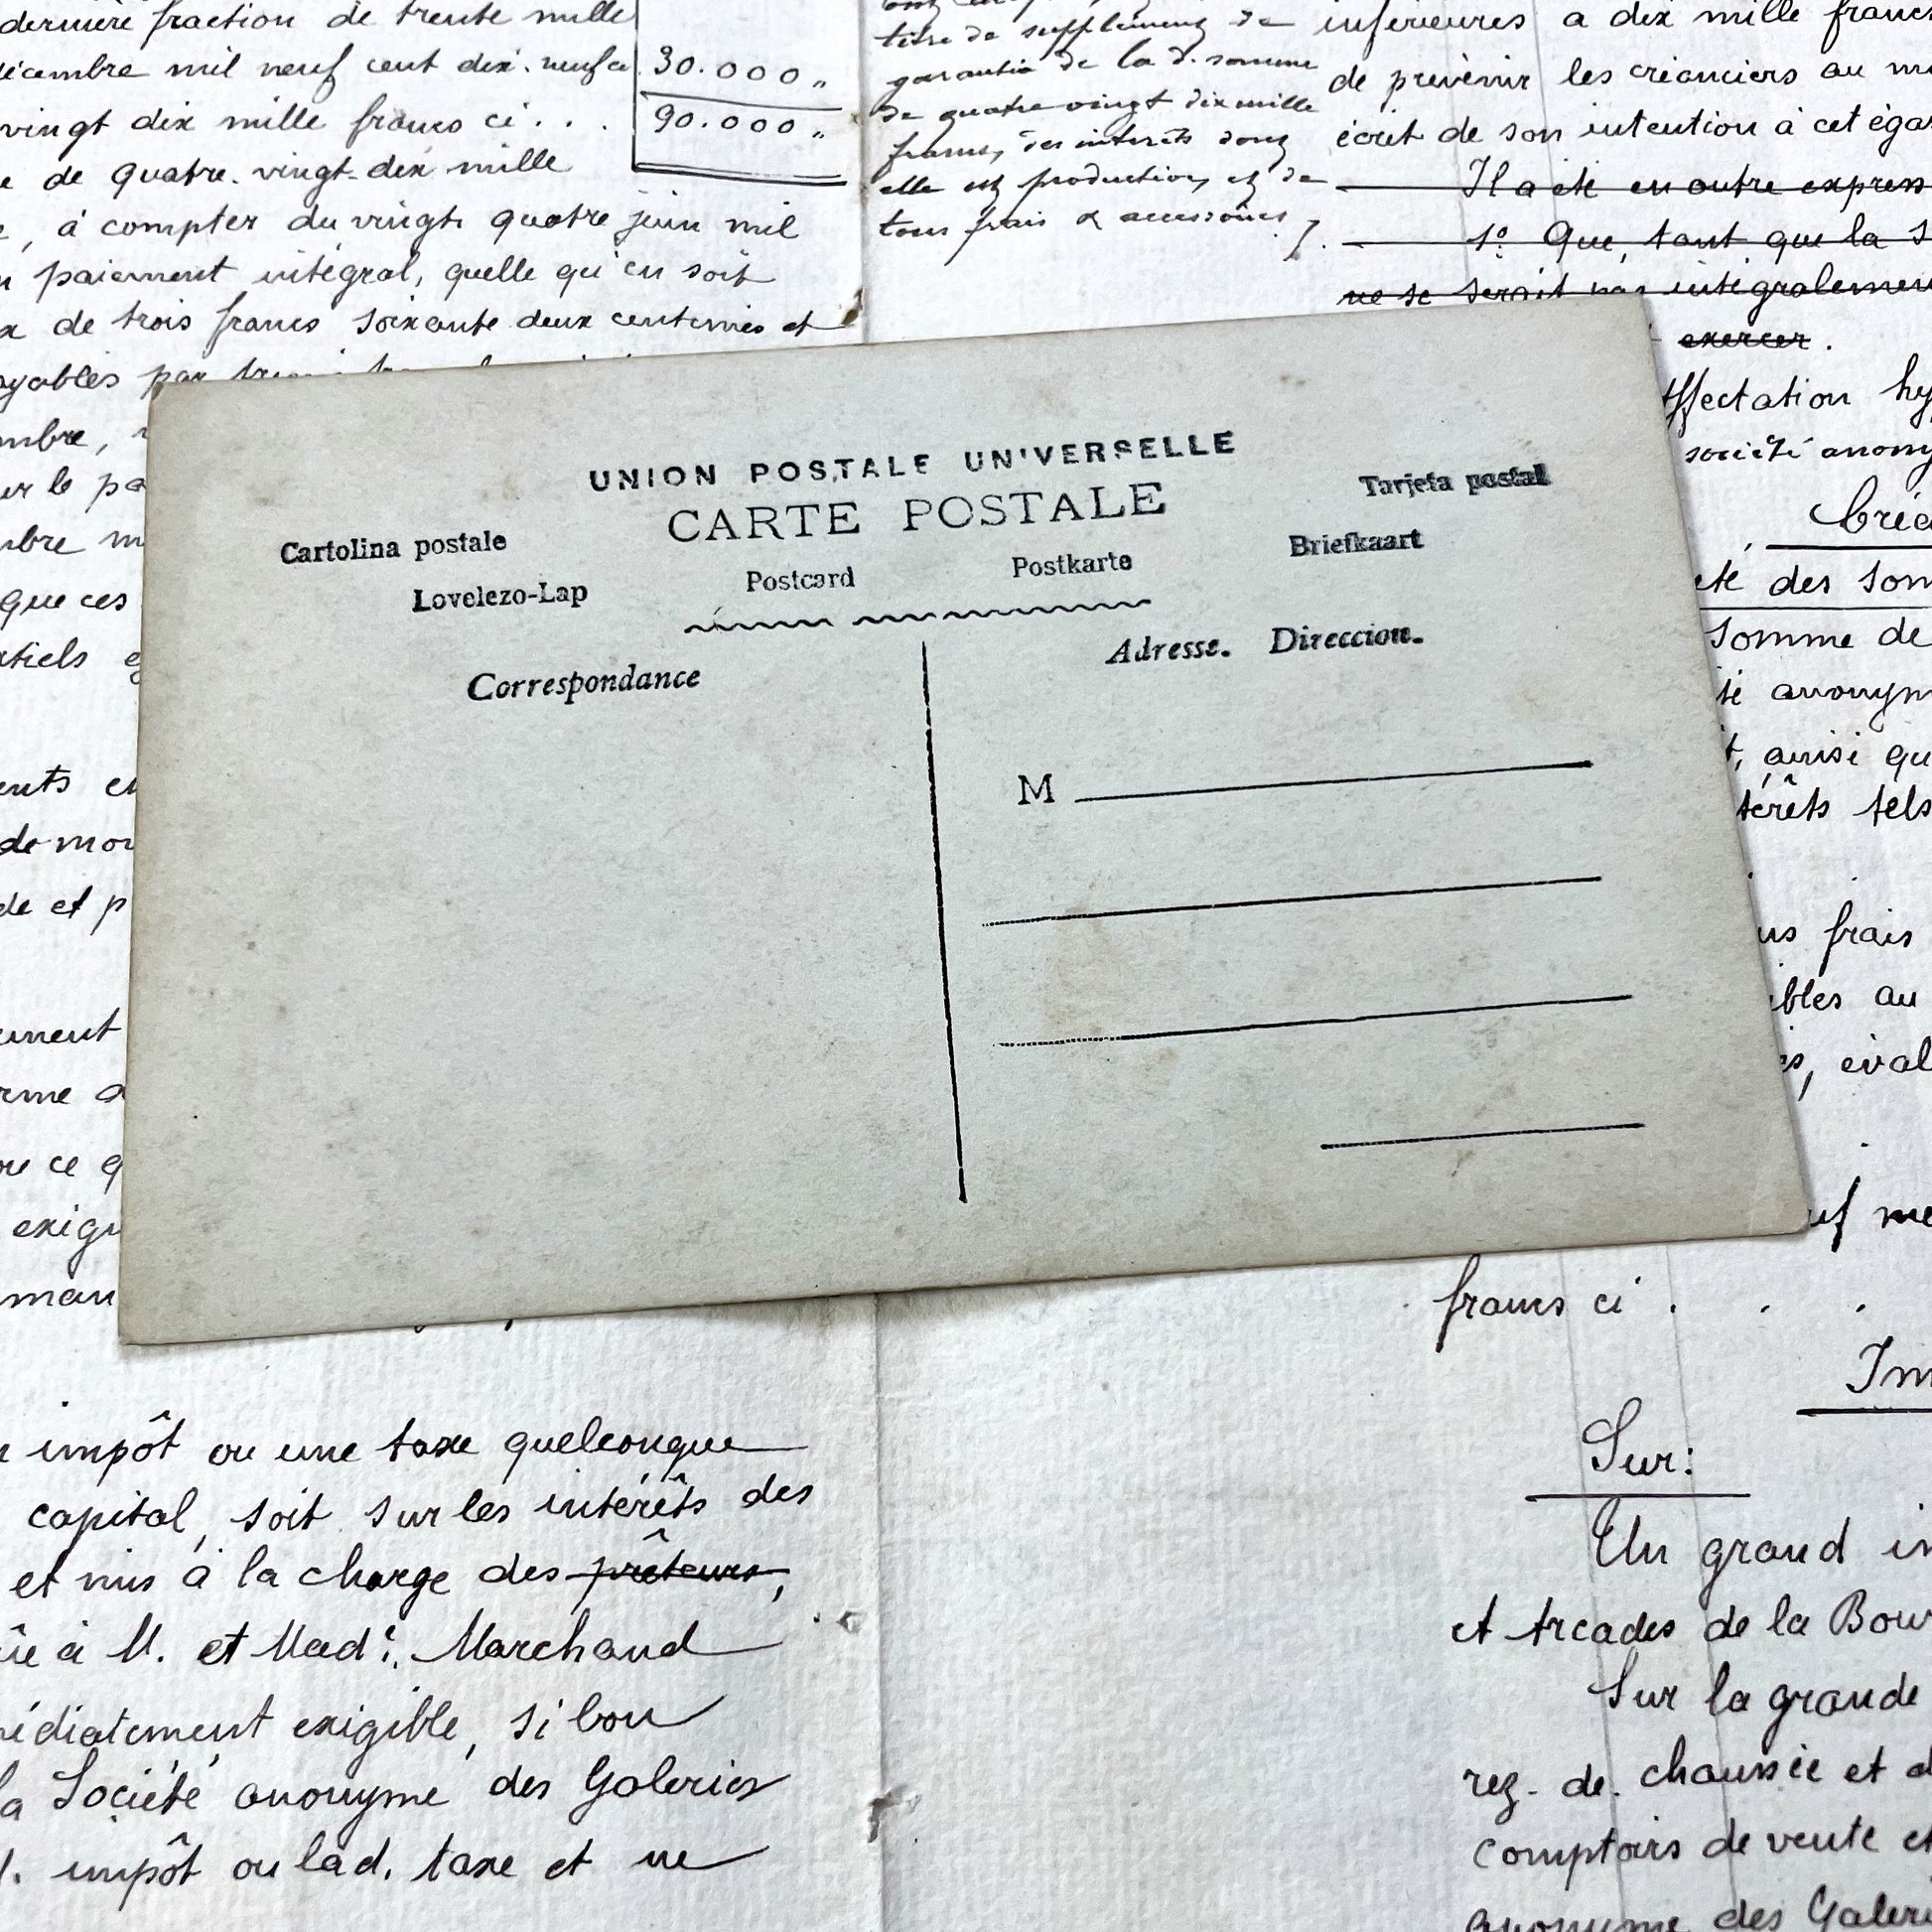 dernière fraction de trente mille
décembre mil neuf cent dix-neuf ci 30.000 "
vingt dix mille francs ci . . . 90.000 "
de quatre-vingt-dix mille
, à compter du vingt quatre juin mil
paiement intégral, quelle qu'en soit
de trois francs soixante deux centimes et
payables par
mbre,
ur le pa
mbre m
que ces
tiels e
ents en
de mon
de et p
ument
rme a
ce q
exigi
man
impôt ou une taxe quelconque
capital, soit sur les intérêts des
et mis à la charge des prêteurs,
à M. et Made. Marchand
médiatement exigible, si bon
la Société anonyme des Galeries
d. impôt ou lad. taxe et ne
titre de supplément de
garantie de la d. somme
de quatre vingt dix mille
francs, des intérêts dont
elle est productive, et de
tous frais & accessoires /.
inférieures à dix mille francs
de prévenir les créanciers au mo
écrit de son intention à cet éga
Il a été en outre express
1º Que, tant que la S
ne se serait pas intégralement
exercer.
Affectation hy
société anony
UNION POSTALE UNIVERSELLE
CARTE POSTALE
Tarjeta postal
Cartolina postale
Briefkaart
Lovelezo-Lap
Postcard
Postkarte
Correspondance
Adresse. Direccion.
M
Créa
été des Som
somme de
té anonym
t, ainsi qu
térêts tels
us frais
ibles au
s, éval
uf me
francs ci . . .
Im
Sur:
Un grand im
et Arcades de la Bour
Sur la grande
rez-de-chaussée et d
comptoirs de vente et
anonyme des Galeri